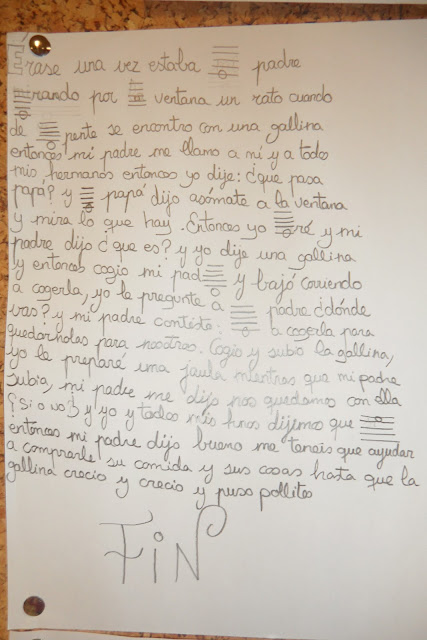 Érase una vez estaba padre
rando por ventana un rato cuando
de pente se encontro con una gallina
entonces mi padre me llamo a mí y a todo
mis hermanos entonces yo dije: ¿que pasa
papá? y papá dijo asómate a la ventana
y mira lo que hay. Entonces yo ré y mi
padre dijo ¿que es? y yo dije una gallina
y entonces cogio mi pad y bajó corriendo
a cogerla, yo le pregunte a padre ¿dónde
vas? y mi padre conteste: a cogerla para
quedárnolas para nosotros. Cogio y subio la gallina,
yo le preparé uma jaula mientras que mi padre
subia, mi padre me dijo nos quedamos con ella
¿Si o no? y yo y todos mis hnos dijimos que
entonces mi padre dijo bueno me teneis que ayudar
a comprarle su comida y sus cosas hasta que la
gallina crecio y crecio y puso pollitos
FiN